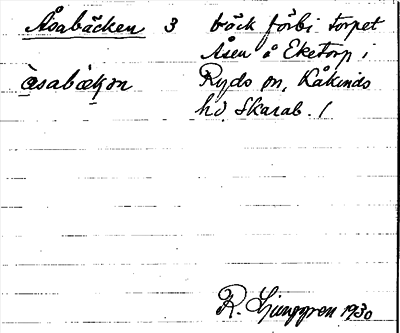 Åsabäcken 3 bäck förbi torpet
Åsen å Eketorp i
åsabæḳən Ryds sn, Kåkinds
hd, Skarab. l
R. Ljunggren 1930